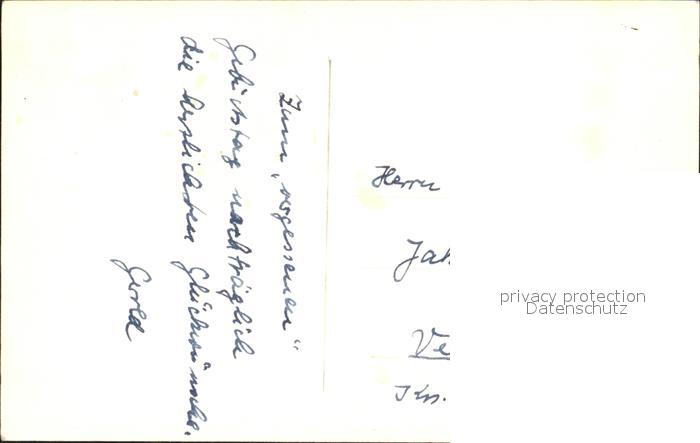 Zum „vergessenen“
Geburtstag nachträglich
die herzlichsten Glückwünsche.
Gerold
Herrn
Jah
Ve
Krs.
privacy protection
Datenschutz